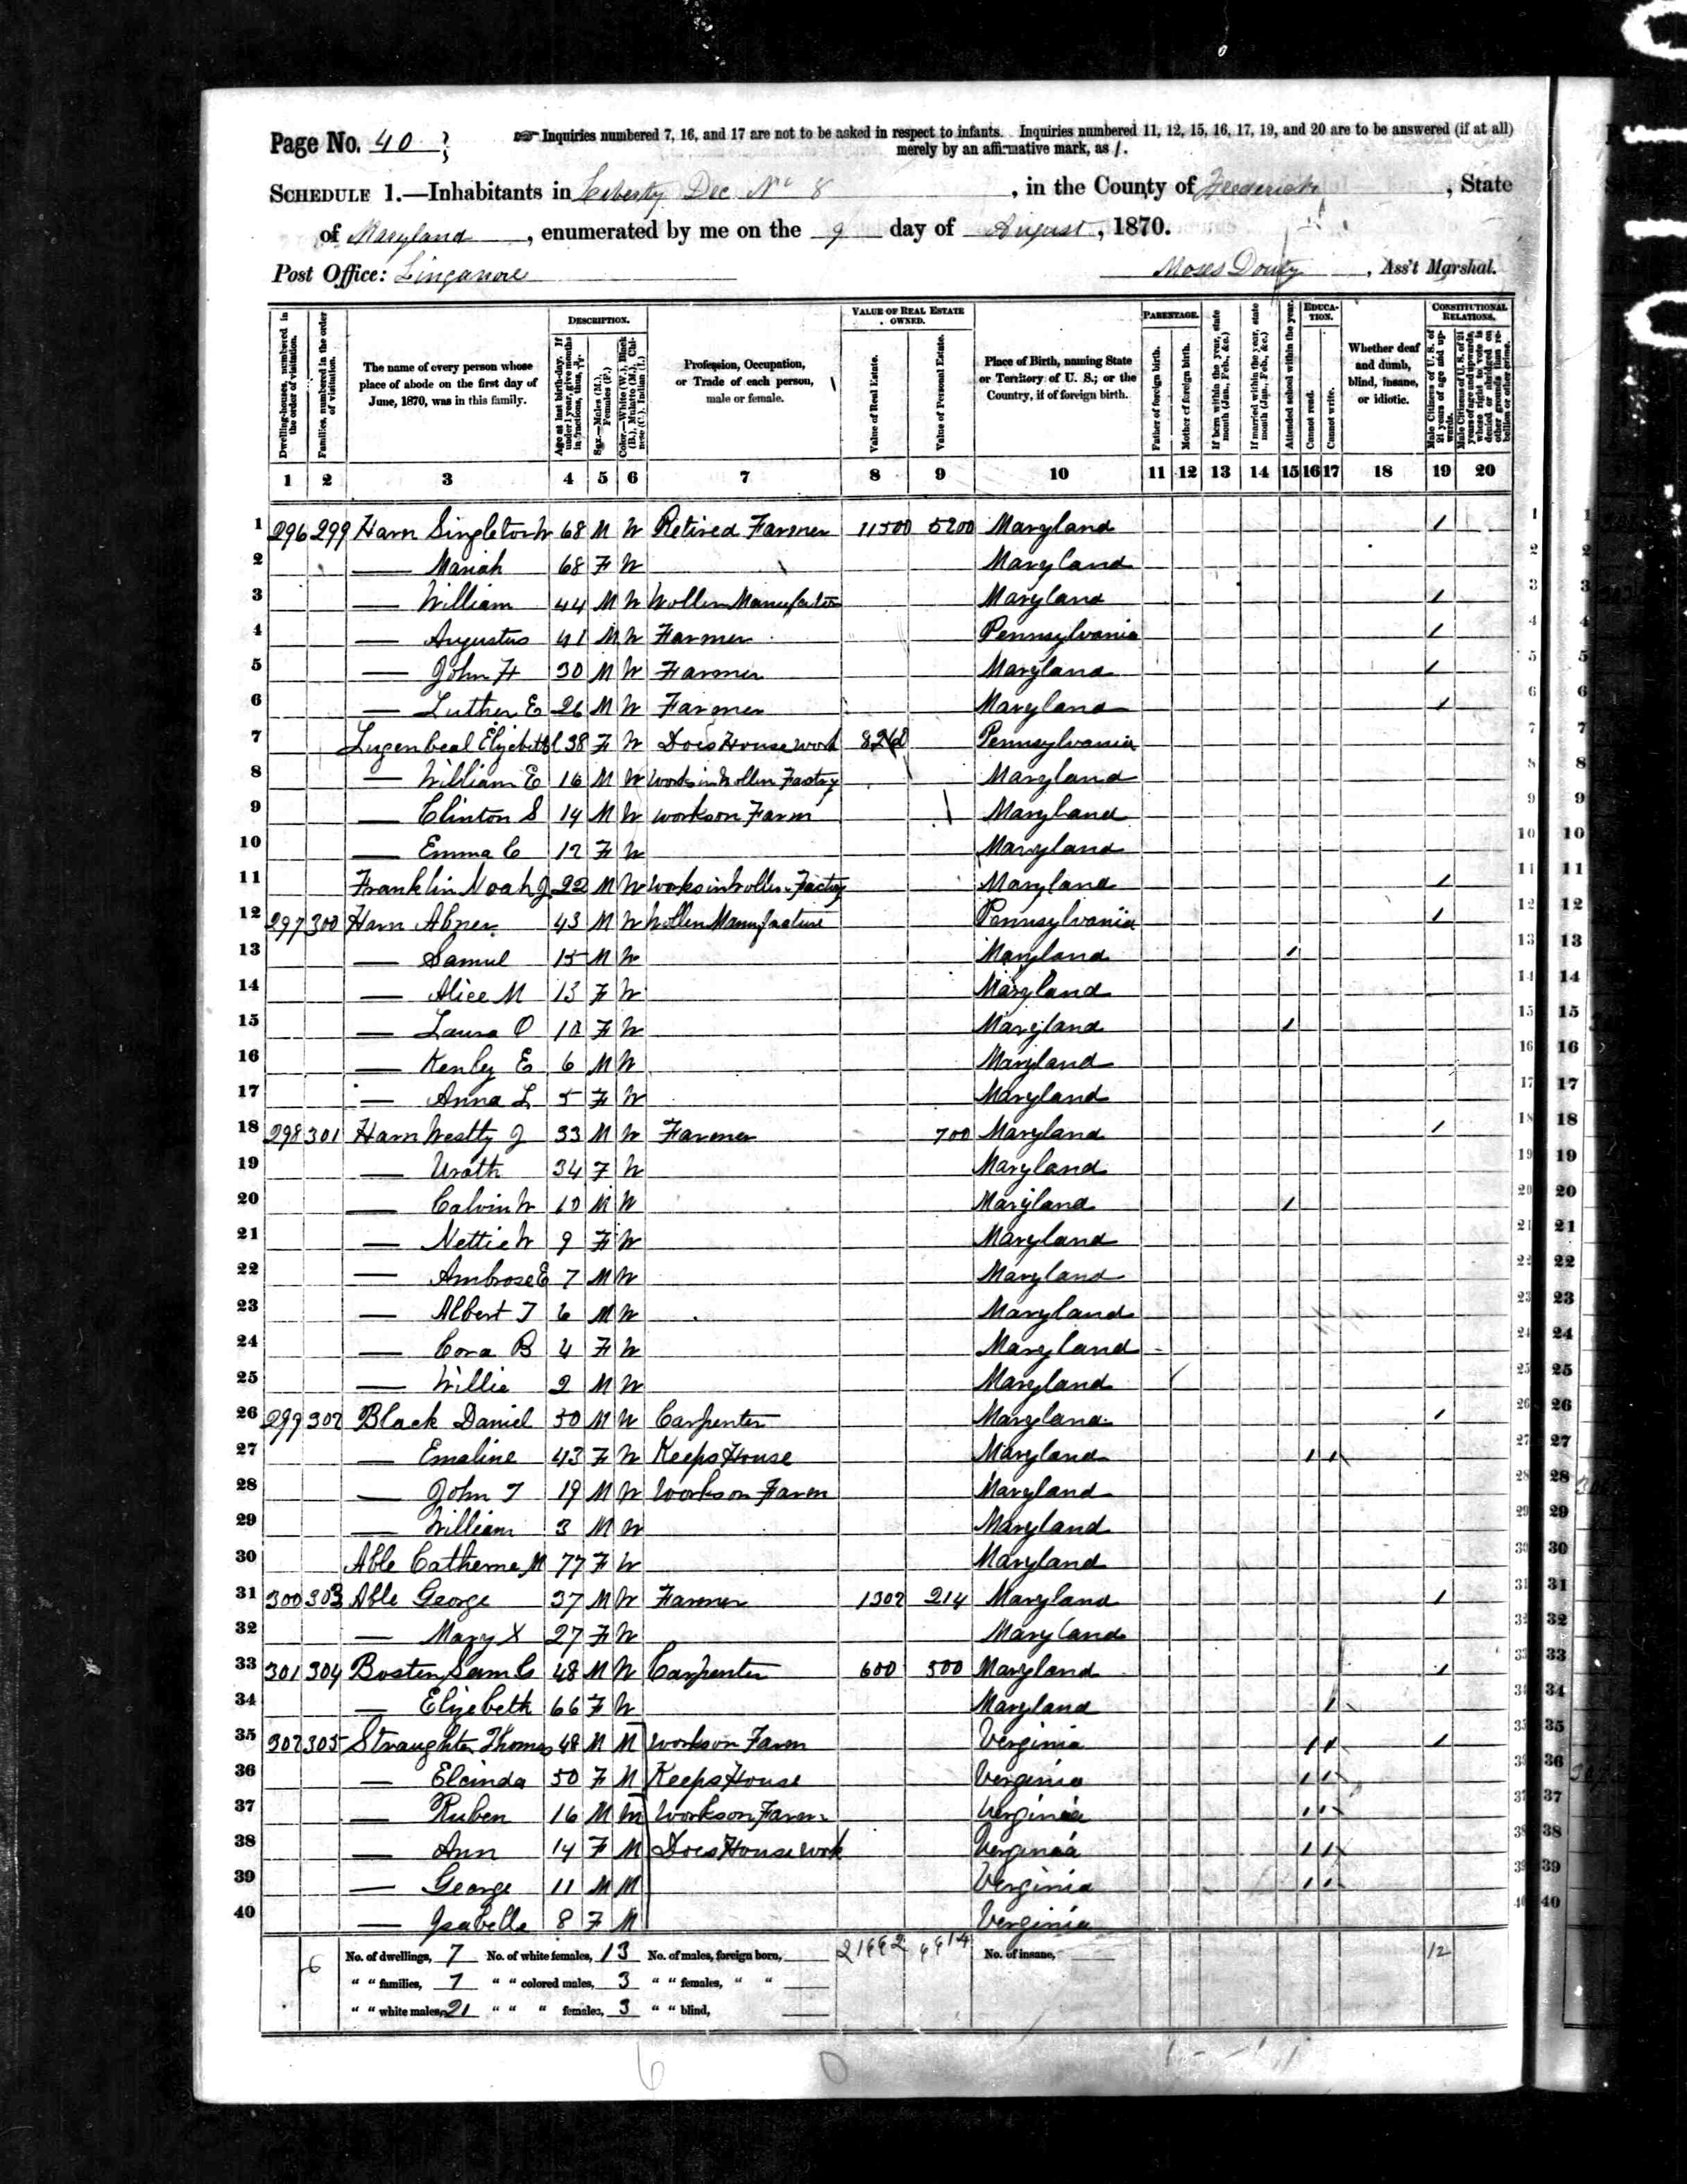 Page No. 40
☞ Inquiries numbered 7, 16, and 17 are not to be asked in respect to infants. Inquiries numbered 11, 12, 15, 16, 17, 19, and 20 are to be answered (if at all)
merely by an affirmative mark, as /.
SCHEDULE 1.—Inhabitants in Liberty Dec No 8, in the County of Frederick, State
of Maryland, enumerated by me on the 9 day of August, 1870.
Post Office: Linganore
Moses Douty, Ass't Marshal.
Dwelling-houses, numbered in the order of visitation.
Families, numbered in the order of visitation.
The name of every person whose place of abode on the first day of June, 1870, was in this family.
DESCRIPTION.
Age at last birth-day. If under 1 year, give months in fractions, thus,
Sex.—Males (M.), Females (F.)
Color.—White (W.), Black (B.), Mulatto (M.), Chinese (C.), Indian (I.)
Profession, Occupation, or Trade of each person, male or female.
VALUE OF REAL ESTATE OWNED.
Value of Real Estate.
Value of Personal Estate.
Place of Birth, naming State or Territory of U. S.; or the Country, if of foreign birth.
PARENTAGE.
Father of foreign birth.
Mother of foreign birth.
If born within the year, state month (Jan., Feb., &c.)
If married within the year, state month (Jan., Feb., &c.)
Attended school within the year.
EDUCATION.
Cannot read.
Cannot write.
Whether deaf and dumb, blind, insane, or idiotic.
CONSTITUTIONAL RELATIONS.
Male Citizens of U. S. of 21 years of age and upwards.
Male Citizens of U. S. of 21 years of age and upwards, whose right to vote is denied or abridged on other grounds than rebellion or other crime.
1 2 3 4 5 6 7 8 9 10 11 12 13 14 15 16 17 18 19 20
1 296 299 Harn Singleton W 68 M W Retired Farmer 11500 5200 Maryland / 1
2 — Mariah 68 F W Maryland 2
3 — William 44 M W Wollen Manufactor Maryland / 3
4 — Augustus 41 M W Farmer Pennsylvania / 4
5 — John H 30 M W Farmer Maryland / 5
6 — Luther E 26 M W Farmer Maryland / 6
7 Lugenbeal Elizebeth 38 F W Does House work Pennsylvania 7
8 — William E 16 M W Works in Wollen Factory Maryland 8
9 — Clinton S 14 M W works on Farm Maryland 9
10 — Emma C 12 F W Maryland 10
11 Franklin Noah J 22 M W Works in Wollen Factory Maryland / 11
12 297 300 Harn Abner 43 M W Wollen Manufacture Pennsylvania / 12
13 — Samul 15 M W Maryland / 13
14 — Alice M 13 F W Maryland 14
15 — Laura O 10 F W Maryland / 15
16 — Kenly E 6 M W Maryland 16
17 — Anna L 5 F W Maryland 17
18 298 301 Harn Westly J 33 M W Farmer 700 Maryland / 18
19 — Urath 34 F W Maryland 19
20 — Calvin W 10 M W Maryland / 20
21 — Nettie W 9 F W Maryland 21
22 — Ambrose E 7 M W Maryland 22
23 — Albert T 6 M W Maryland 23
24 — Cora B 4 F W Maryland 24
25 — Willie 2 M W Maryland 25
26 299 302 Black Daniel 50 M W Carpenter Maryland / 26
27 — Emaline 43 F W Keeps House Maryland / / 27
28 — John T 19 M W Works on Farm Maryland 28
29 — William 3 M W Maryland 29
30 Able Catherine M 77 F W Maryland 30
31 300 303 Able George 37 M W Farmer 1302 214 Maryland / 31
32 — Mary X 27 F W Maryland 32
33 301 304 Bosten Sam C 48 M W Carpenter 600 500 Maryland / 33
34 — Elizebeth 66 F W Maryland / 34
35 302 305 Straughter Thomas 48 M M works on Farm Verginia / / / 35
36 — Elcinda 50 F M Keeps House Verginia / / 36
37 — Ruben 16 M M works on Farm Verginia / / 37
38 — Ann 14 F M Does House work Verginia / / 38
39 — George 11 M M Verginia / / 39
40 — Isabelle 8 F M Verginia 40
6 No. of dwellings, 7 No. of white females, 13 No. of males, foreign born, No. of insane, 12
" " families, 7 " " colored males, 3 " " females, " "
" " white males, 21 " " " females, 3 " " blind,